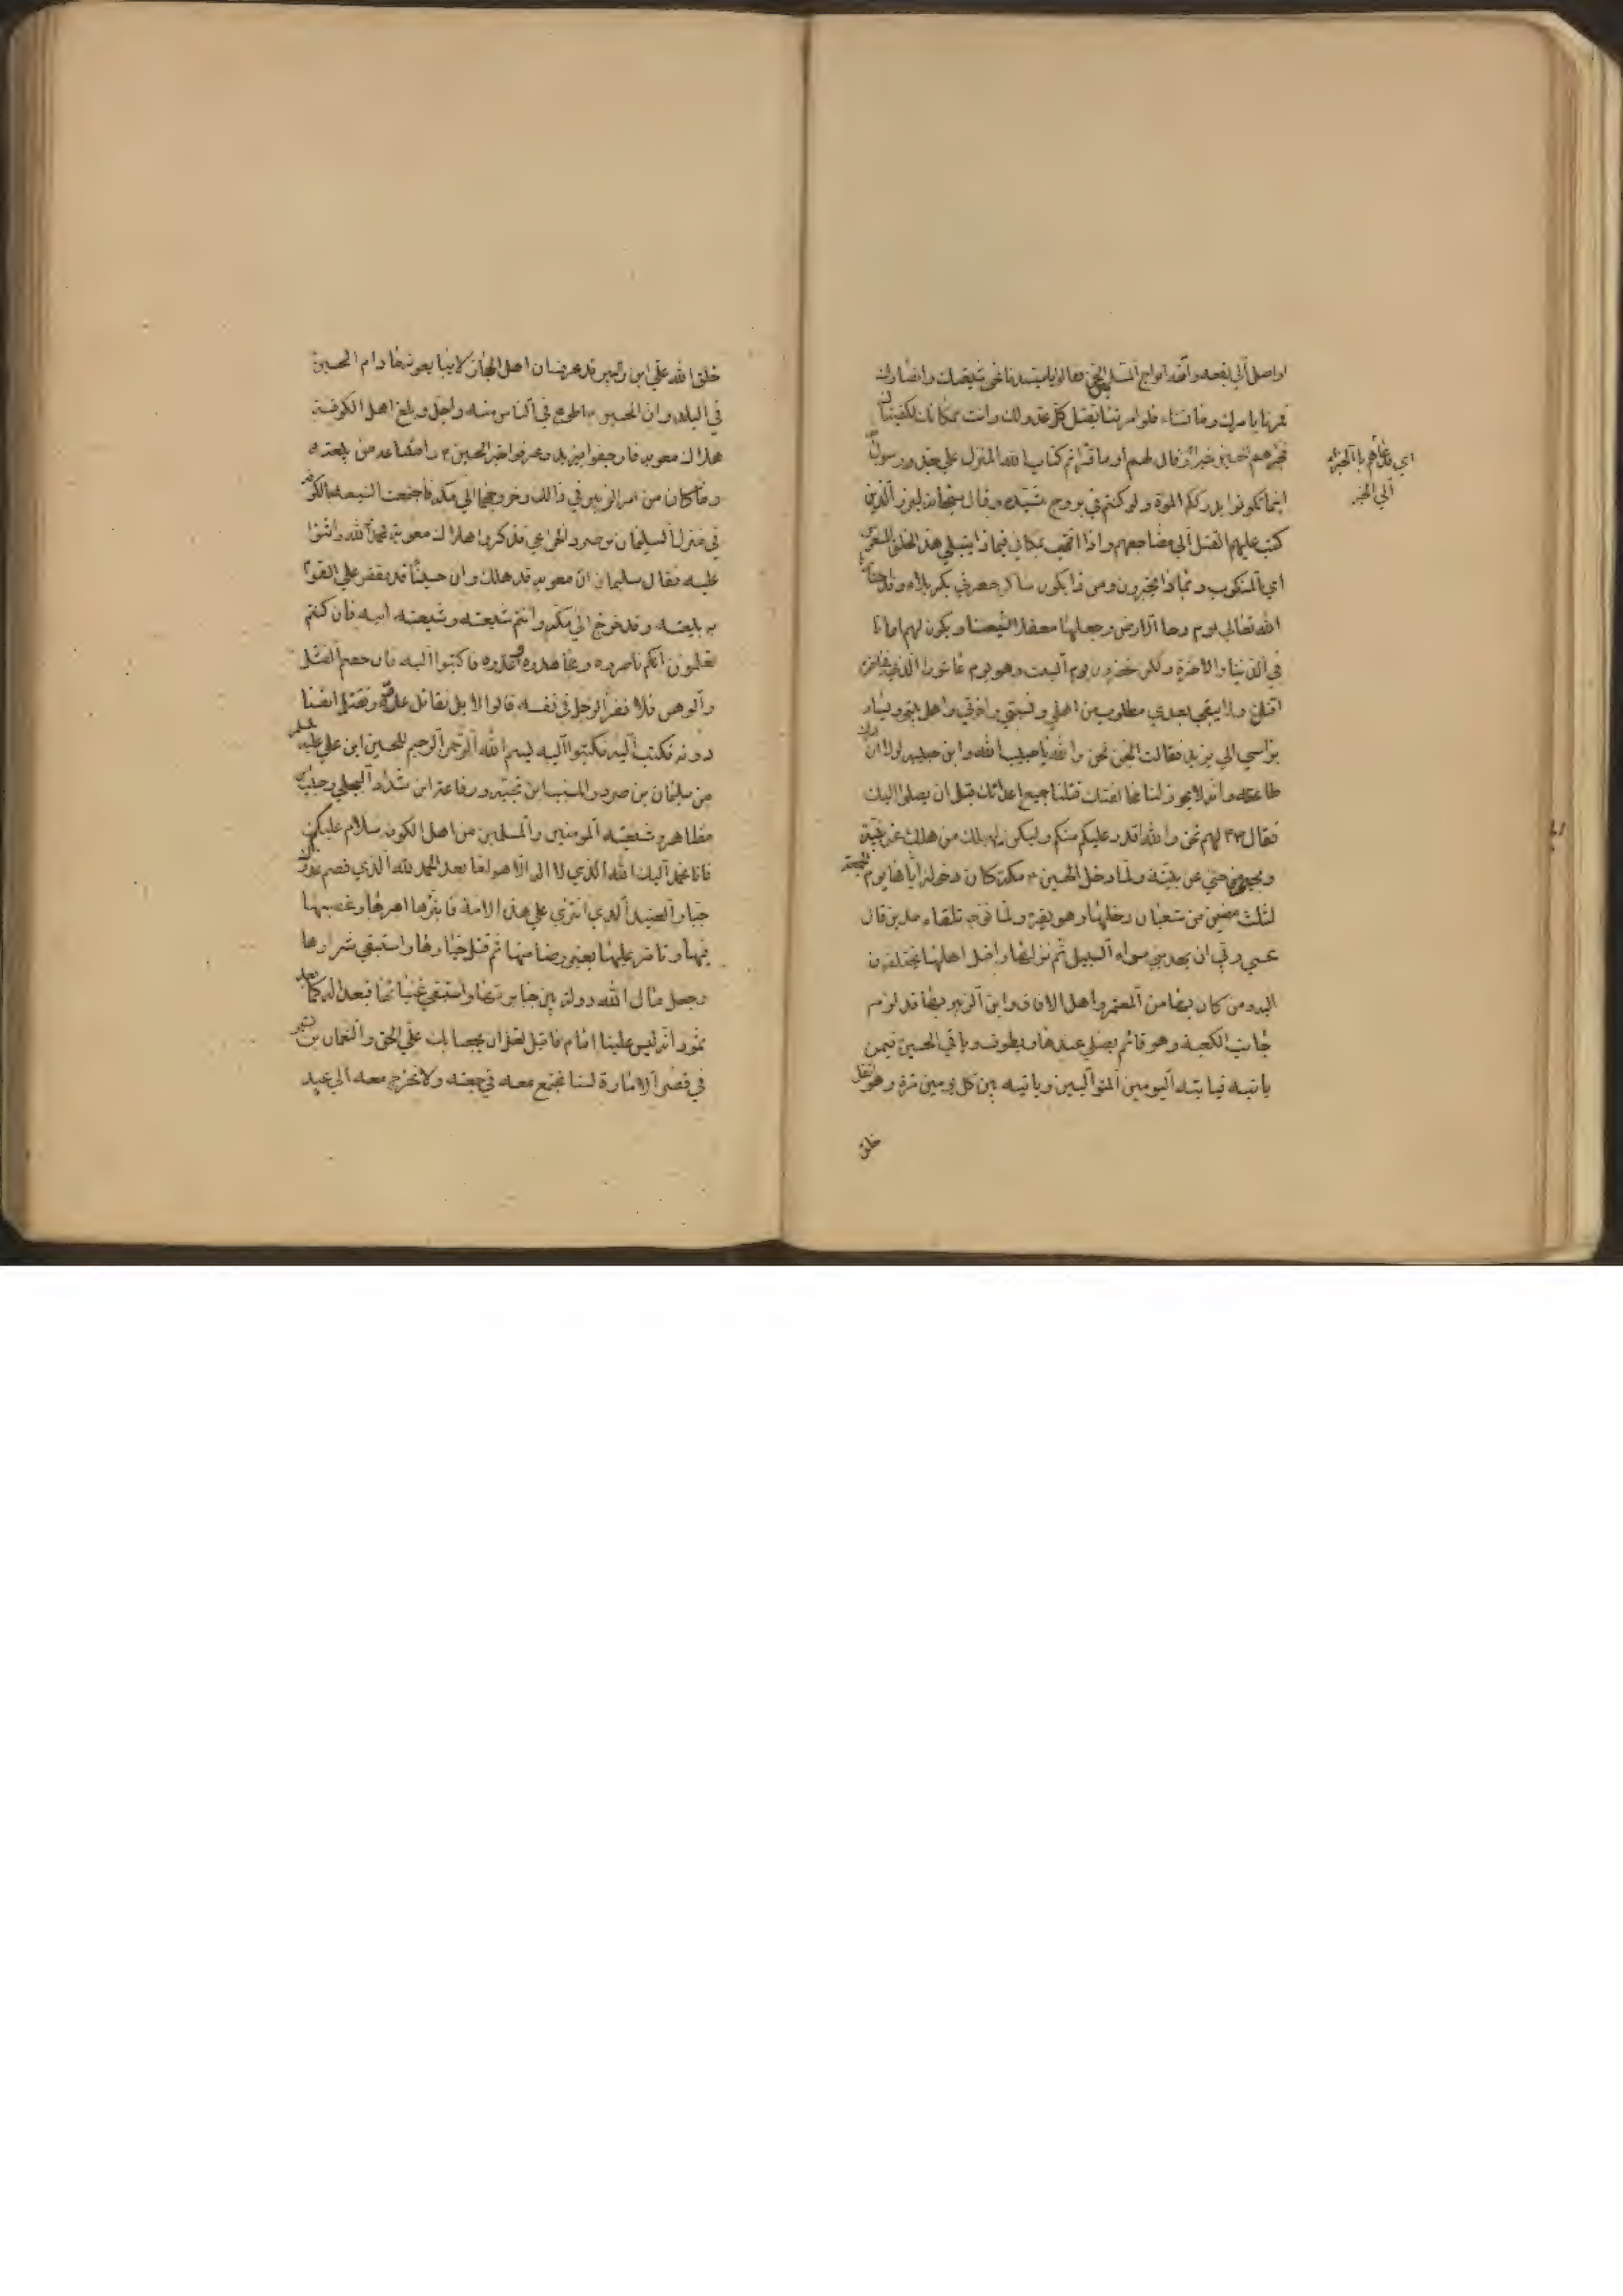 او اصل الي بقعه واتته افواج مسلمي الجن فقالوا يا سيدنا نحن شيعتك وانصارك
فمرنا بامرك وما تشاء فلو امرتنا بقتل كل عدو لك وانت بمكانك لكفيناك
فجزهم الحسين خيرا وقال لهم أو ما قراتم كتاب الله المنزل علي جدي رسول
اينما تكونوا يدرككم الموت ولو كنتم في بروج مشيده وقال سبحانه لبرز الذين
كتب عليهم القتل الي مضاجعهم واذا اقمت بمكاني فبماذا يبتلي هذا الخلق المتعوس
اي المنكوب وبماذا يختبرون ومن ذا يكون ساكن حفرتي بكربلاء وقد اختارها
الله تعالي يوم دحا الارض وجعلها معقلا لشيعتنا ويكون لهم امانا
في الدنيا والاخرة ولكن تحضرون يوم السبت وهو يوم عاشورا الذي في اخره
اقتل ولا يبقي بعدي مطلوب من اهلي ونسبتي واخوتي واهل بيتي ويسار
براسي الي يزيد فقالت الجن نحن والله يا حبيب الله وابن حبيبه لولا ان امرك
طاعة وانه لا يجوز لنا مخالفتك قتلنا جميع اعدائك قبل ان يصلوا اليك
فقال لهم نحن والله اقدر عليكم منكم وليكن ليهلك من هلك عن بينة
ويحيي من حي عن بينة ولما دخل الحسين مكة كان دخوله اياها يوم الجمعة
لثلث مضين من شعبان دخلها وهو يقرء ولما توجه تلقاء مدين قال
عسي ربي ان يهديني سواء السبيل ثم نزلها واقبل اهلها يختلفون
اليه ومن كان بها من المعتمرين واهل الافاق وابن الزبير بها قد لزم
جانب الكعبة وهو قائم يصلي عندها ويطوف وياتي الحسين فيمن
ياتيه فياتيه اليومين المتواليين وياتيه بين كل يومين مرة وهو اثقل
خلق
اي دعاهم بالخير
الي الخير
خلق الله علي ابن زبير قد عرف ان اهل الحجاز لا يبايعونه ما دام الحسين
في البلد وان الحسين اطوع في الناس منه واجل وبلغ اهل الكوفة
هلاك معويه فارجفوا بيزيد وعرفوا خبر الحسين وامتناعه من بيعته
وما كان من امر الزبير في ذالك وخروجهما الي مكه فاجتمعت الشيعه بالكوفه
في منزل سليمان بن صرد الخزاعي فذكروا هلاك معوية فحمد الله واثنوا
عليه فقال سليمان ان معويه قد هلك وان حسينا قد تقضي علي القوم
ببيعته وقد خرج الي مكه وانتم شيعته وشيعته ابيه فان كنتم
تعلمون انكم ناصروه ومجاهدوا عدوه فاكتبوا اليه فان خفتم الفشل
والوهن فلا تغروا الرجل في نفسه قالوا لا بل نقاتل عدوه ونقتل انفسنا
دونه فكتب اليه فكتبوا اليه بسم الله الرحمن الرحيم للحسين ابن علي عليه السلم
من سليمان بن صرد والمسيب ابن نجبه ورفاعة ابن شداد البجلي وحبيب بن
مظاهر وشيعته المومنين والمسلمين من اهل الكوفه سلام عليكم
فانا نحمد اليك الله الذي لا اله الا هو اما بعد الحمد لله الذي قصم عدوك
الجبار العنيد الذي انتزي علي هذه الامة فابتزها امرها وغصبها
فيها وتامر عليها بغير رضا منها ثم قتل خيارها واستبقي شرارها
وجعل مال الله دولة بين جبابرتها واستبقي غنيائها فبعدا له كما بعد
ثمود انه ليس علينا امام فاقبل لعل الله ان يجمعنا بك علي الحق والنعمان بن بشير
في قصر الامارة لسنا نجتمع معه في جمعه ولا نخرج معه الي عيد